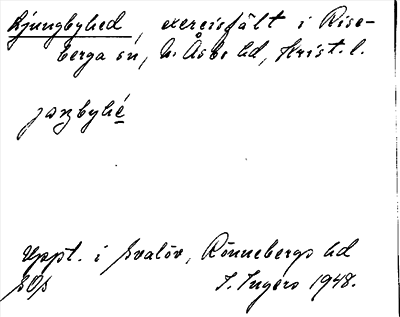 Ljungbyhed, exercisfält i Rise-
berga sn, N. Åsbo hd, Krist. l.
jaŋbyhé
Uppt. i Svalöv, Rönnebergs hd
SOS
I. Ingers 1948.